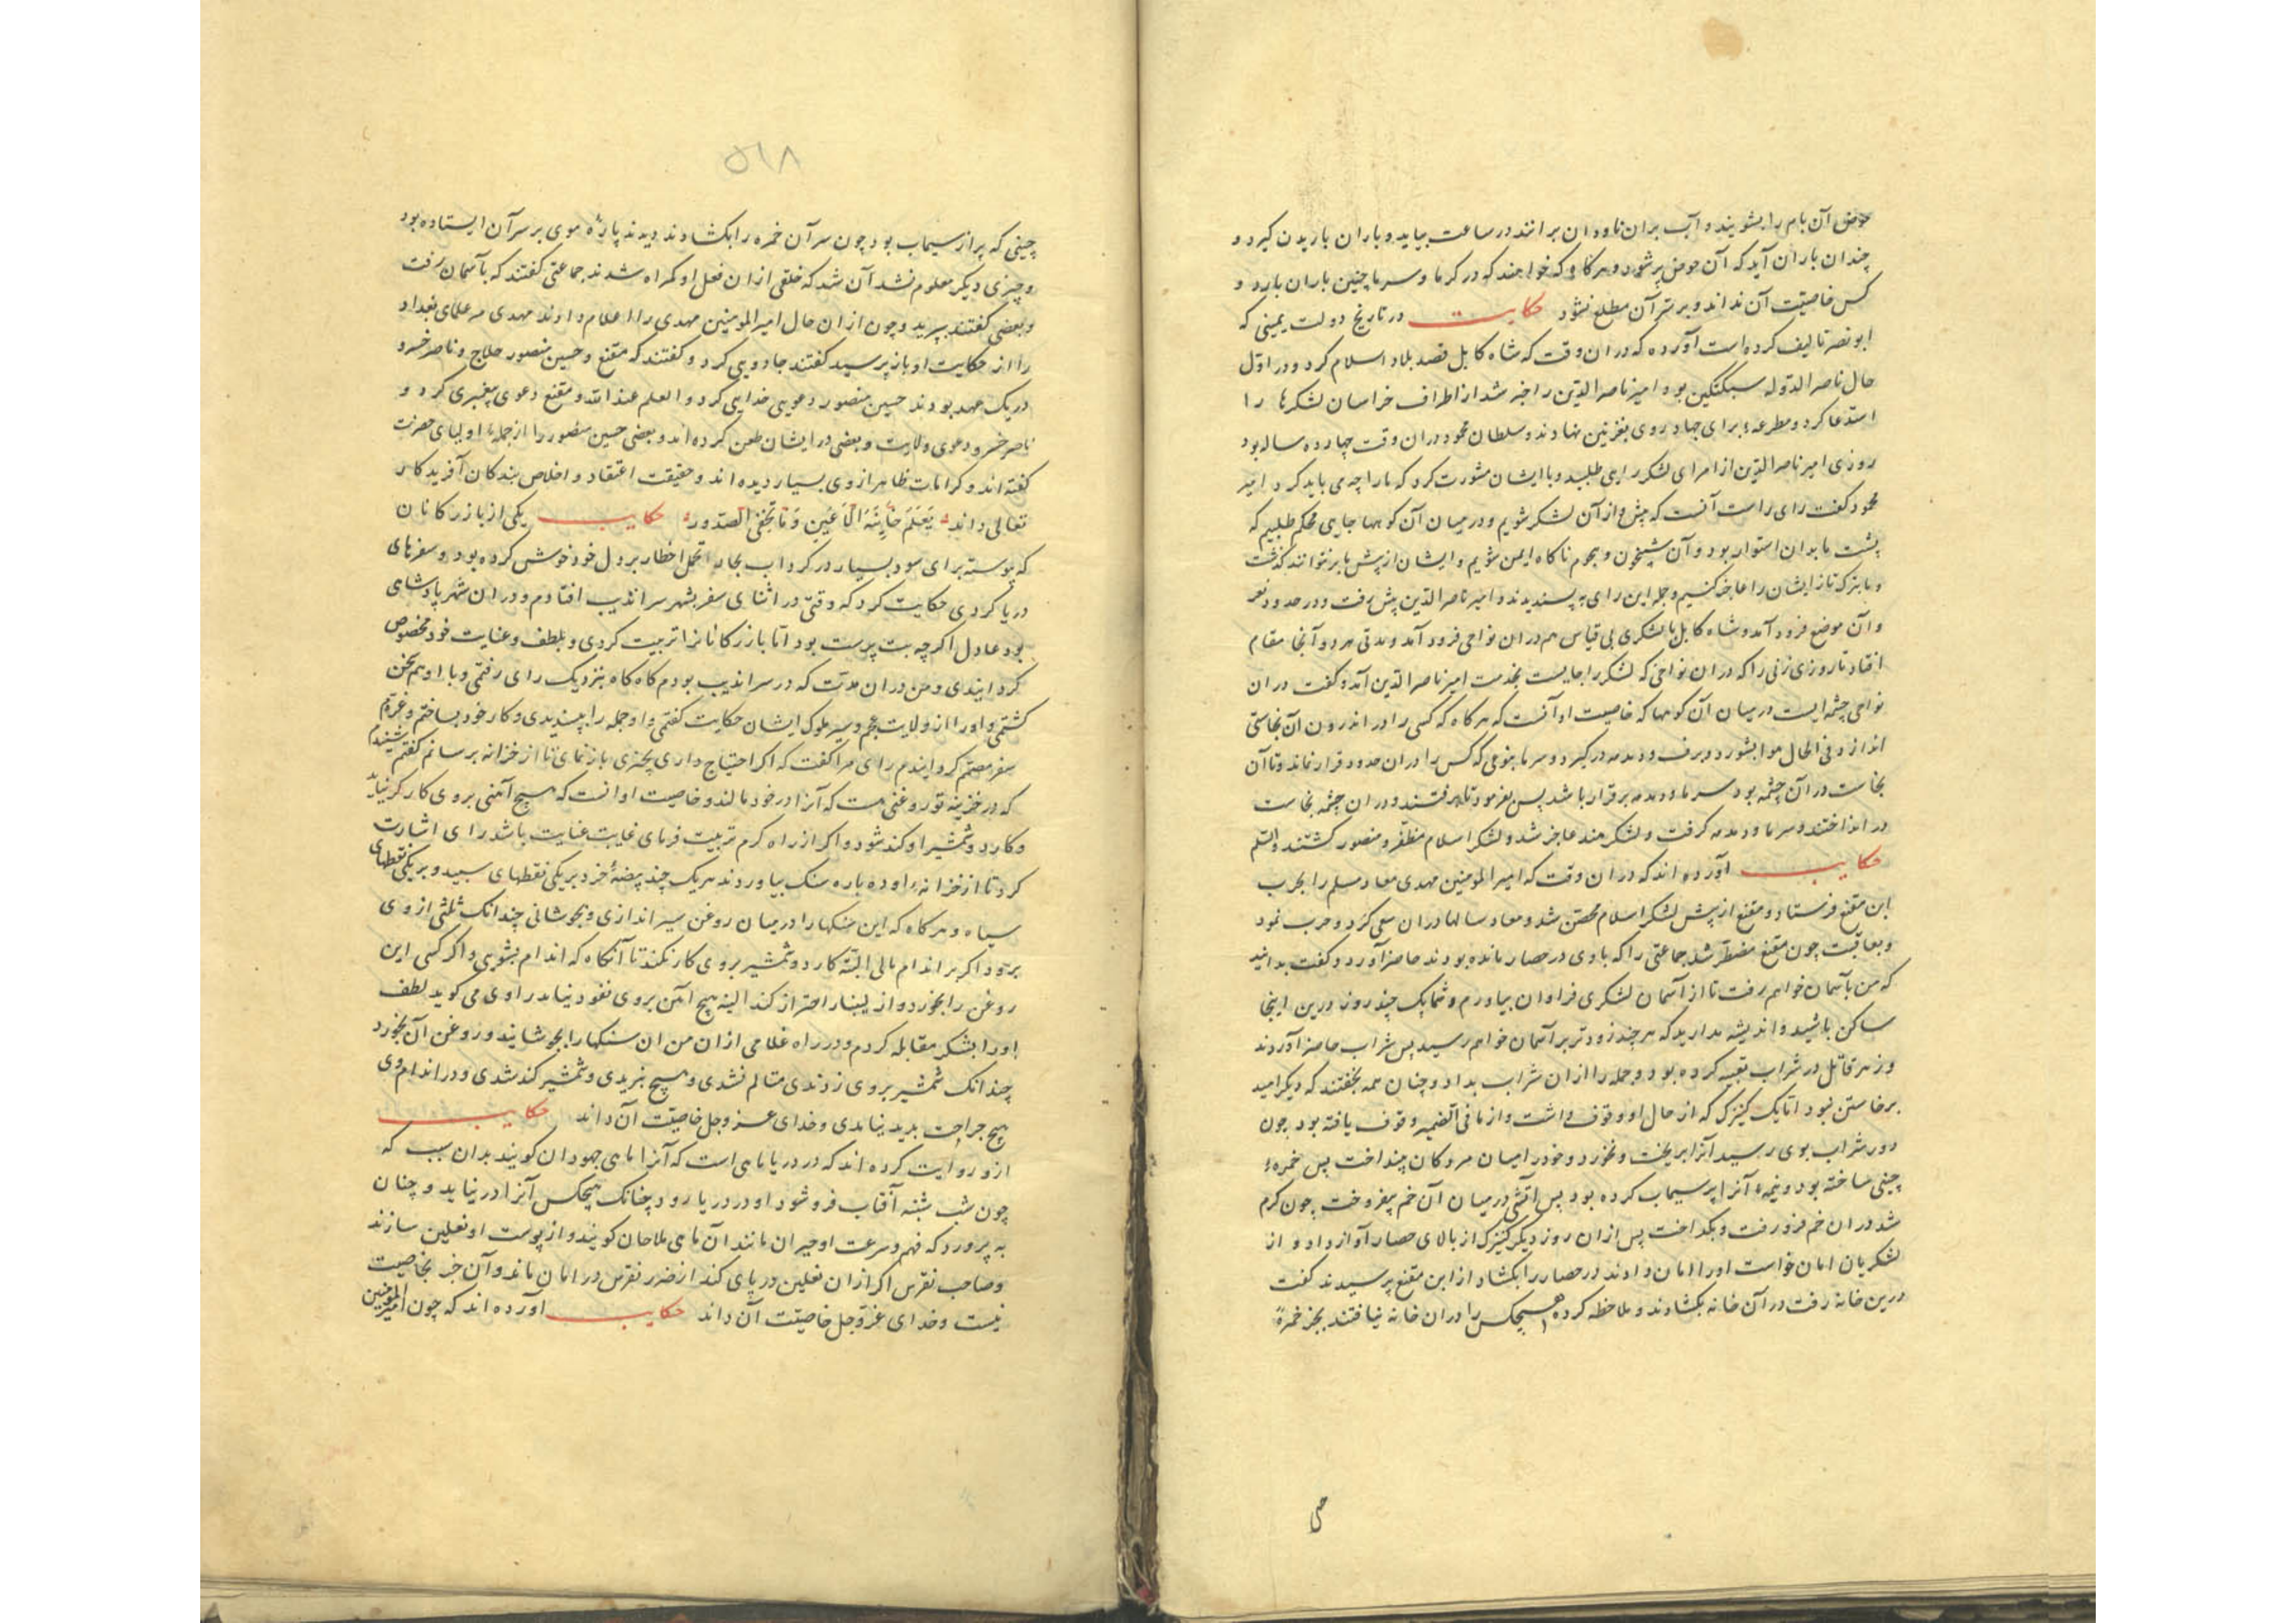 حوض آن بام را بشویند و آب بران ناودان برانند در ساعت بیاید و باران باریدن گیرد و
چندان باران آید که آن حوض پر شود و هرگاه که خواهند که در گرما و سرما چنین باران بارد و
کس خاصیت آن نداند و بر سر آن مطلع نشود حکایت در تاریخ دولت یمینی که
ابونصر تالیف کرده است آورده که دران وقت که شاه کابل قصد بلاد اسلام کرد و در اول
حال ناصر الدوله سبکتکین بود امیر ناصر الدین را خبر شد از اطراف خراسان لشکرها را
استدعا کرد و مطوعه برای جهاد روی بغزنین نهادند و سلطان محمود دران وقت چهارده ساله بود
روزی امیر ناصر الدین از امرای لشکر رایی طلبید و با ایشان مشورت کرد که ما را چه می باید کرد امیر
محمود گفت رای راست آنست که پیش از آن لشکر شویم و در میان آن کوهها جایی محکم طلبیم که
پشت ما بدان استوار بود و از شبیخون و هجوم ناگاه ایمن شویم و ایشان از پیش ما بر نتوانند گذشت
و ما بترکتاز ایشان را عاجز کنیم و جمله این رای به پسندیدند و امیر ناصر الدین پیش رفت و در حدود
و آن موضع فرود آمد و شاه کابل با لشکری بی قیاس هم دران نواحی فرود آمد و مدتی هر دو آنجا مقام
افتاد تا روزی زنی را که دران نواحی که لشکر را جایست بخدمت امیر ناصر الدین آمد و گفت دران
نواحی چشمه ایست در میان آن کوهها که خاصیت او آنست که هرگاه که کسی را در اندرون آن نجاستی
اندازد فی الحال هوا بشورد و برف و دمه در گیرد و سرما بنوعی که کس را دران حدود قرار نماند و تا آن
نجاست در آن چشمه بود سرما و دمه برقرار باشد پس بفرمود تا برفتند و دران چشمه نجاست
در انداختند و سرما و دمه گرفت و لشکر هند عاجز شد و لشکر اسلام مظفر و منصور گشتند
حکایت آورده اند که دران وقت که امیر المومنین مهدی معاد مسلم را بحرب
ابن مقنع فرستاد و مقنع از پیش لشکر اسلام محصن شد و معاد سالها دران سعی کرد و حرب نمود
و بعاقبت چون مقنع مضطر شد جماعتی را که باوی در حصار مانده بودند حاضر آورد و گفت بدانید
که من بآسمان خواهم رفت تا از آسمان لشکری فراوان بیاورم و شما یک چند روز درین اینجا
ساکن باشید و اندیشه مدارید که هر چند زودتر بر آسمان خواهم رسید پس شراب حاضر آوردند
و زهر قاتل در شراب تعبیه کرده بود و جمله را ازان شراب بداد و چنان همه بخفتند که دیگر امید
برخاستن نبود اما یک کنیزک که از حال او وقوف داشت و از مافی الضمیر وقوف یافته بود چون
دور شراب بوی رسید آنرا بریخت و نخورد و خود را میان مردگان بینداخت پس خمره
چینی ساخته بود و نیمه آنرا پر سیماب کرده بود پس آتشی در میان آن خم بیفروخت چون گرم
شد دران خم فرو رفت و بگداخت پس ازان روز دیگر کنیزک از بالای حصار آواز داد و از
لشکریان امان خواست او را امان دادند در حصار را بگشاد از ابن مقنع پرسیدند گفت
درین خانه رفت در آن خانه بگشادند و ملاحظه کرده هیچکس را دران خانه نیافتند بجز خمره
۵۱۸
چینی که پر از سیماب بود چون سر آن خمره را بگشادند دیدند پاره موی بر سر آن ایستاده بود
و چیزی دیگر معلوم نشد آن شد که خلقی ازان فعل او گمراه شدند جماعتی گفتند که بآسمان رفت
و بعضی گفتند بپرید و چون ازان حال امیر المومنین مهدی را اعلام دادند مهدی همه علمای بغداد
را از حکایت او باز پرسید گفتند جادویی کرد و گفتند که مقنع و حسین منصور حلاج و ناصر خسرو
در یک عهد بودند حسین منصور دعوی خدایی کرد و العلم عند الله و مقنع دعوی پیغمبری کرد و
ناصر خسرو دعوی ولایت و بعضی در ایشان طعن کرده اند و بعضی حسین منصور را از جمله اولیای حضرت
گفته اند و کرامات ظاهر از وی بسیار دیده اند و حقیقت اعتقاد و اخلاص بندگان آفریدگار
تعالی داند یَعْلَمُ خَائِنَةَ الْأَعْیُنِ وَمَا تُخْفِی الصُّدُور حکایت یکی از بازرگانان
که پیوسته برای سود بسیار در گرداب بحار تحمل اخطار بر دل خود خوش کرده بود و سفرهای
دریا کردی حکایت کرد که وقتی در اثنای سفر بشهر سراندیب افتادم و دران شهر پادشاهی
بود عادل اگرچه بت پرست بود اما بازرگانانرا تربیت کردی و بلطف و عنایت خود مخصوص
گردانیدی و من دران مدت که در سراندیب بودم گاه گاه بنزدیک رای رفتمی و با او هم سخن
گشتمی و او را از ولایت عجم و سیر ملوک ایشان حکایت گفتمی و او جمله را پسندیدی و کار خود بساختم و عزم
سفر مصمم گردانیدم رای مرا گفت که اگر احتیاج داری بچیزی باز نمای تا از خزانه برسانم گفتم شنیدم
که در خزینه تو روغنی هست که آنرا در خود مالند و خاصیت او انست که هیچ آهنی بروی کار گر نیاید
و کارد و شمشیر او کند شود و اگر از راه کرم تربیت فرمای غایت عنایت باشد رای اشارت
کرد تا از خزانه او ده باره سنگ بیاوردند هر یک چند بیضه خرد بر یکی نقطهای سپید و بر یکی نقطهای
سیاه و هرگاه که این سنگها را در میان روغن سیر اندازی و بجوشانی چندانک ثلثی از وی
برود اگر بر اندام مالی البته کارد و شمشیر بروی کار نکند تا آنگاه که اندام بشویی و اگر کسی این
روغن را بخورد و از احتراز کند البته هیچ آهن بروی نفوذ نیابد راوی می گوید لطف
او را بشکر مقابله کردم و در راه غلامی ازان من ان سنگها را بجوشانید و روغن آن بخورد
چندانک شمشیر بروی زدندی متالم نشدی و هیچ نبریدی و شمشیر کند شدی و در اندام وی
هیچ جراحت پدید نیامدی و خدای عز و جل خاصیت آن داند حکایت
ازو روایت کرده اند که در دریا ماهی است که آنرا ماهی جهودان گویند بدان سبب که
چون شب شنبه آفتاب فرو شود او در دریا رود چنانک هیچکس آنرا در نیابد و چنان
به پرورد که فهم و سرعت او حیران مانند آن ماهی ملاحان گویند و از پوست او نعلین سازند
و صاحب نقرس اگر ازان نعلین در پای کند از ضرر نقرس در امان ماند و آن جز بخاصیت
نیست و خدای عز و جل خاصیت آن داند حکایت آورده اند که چون امیر المومنین